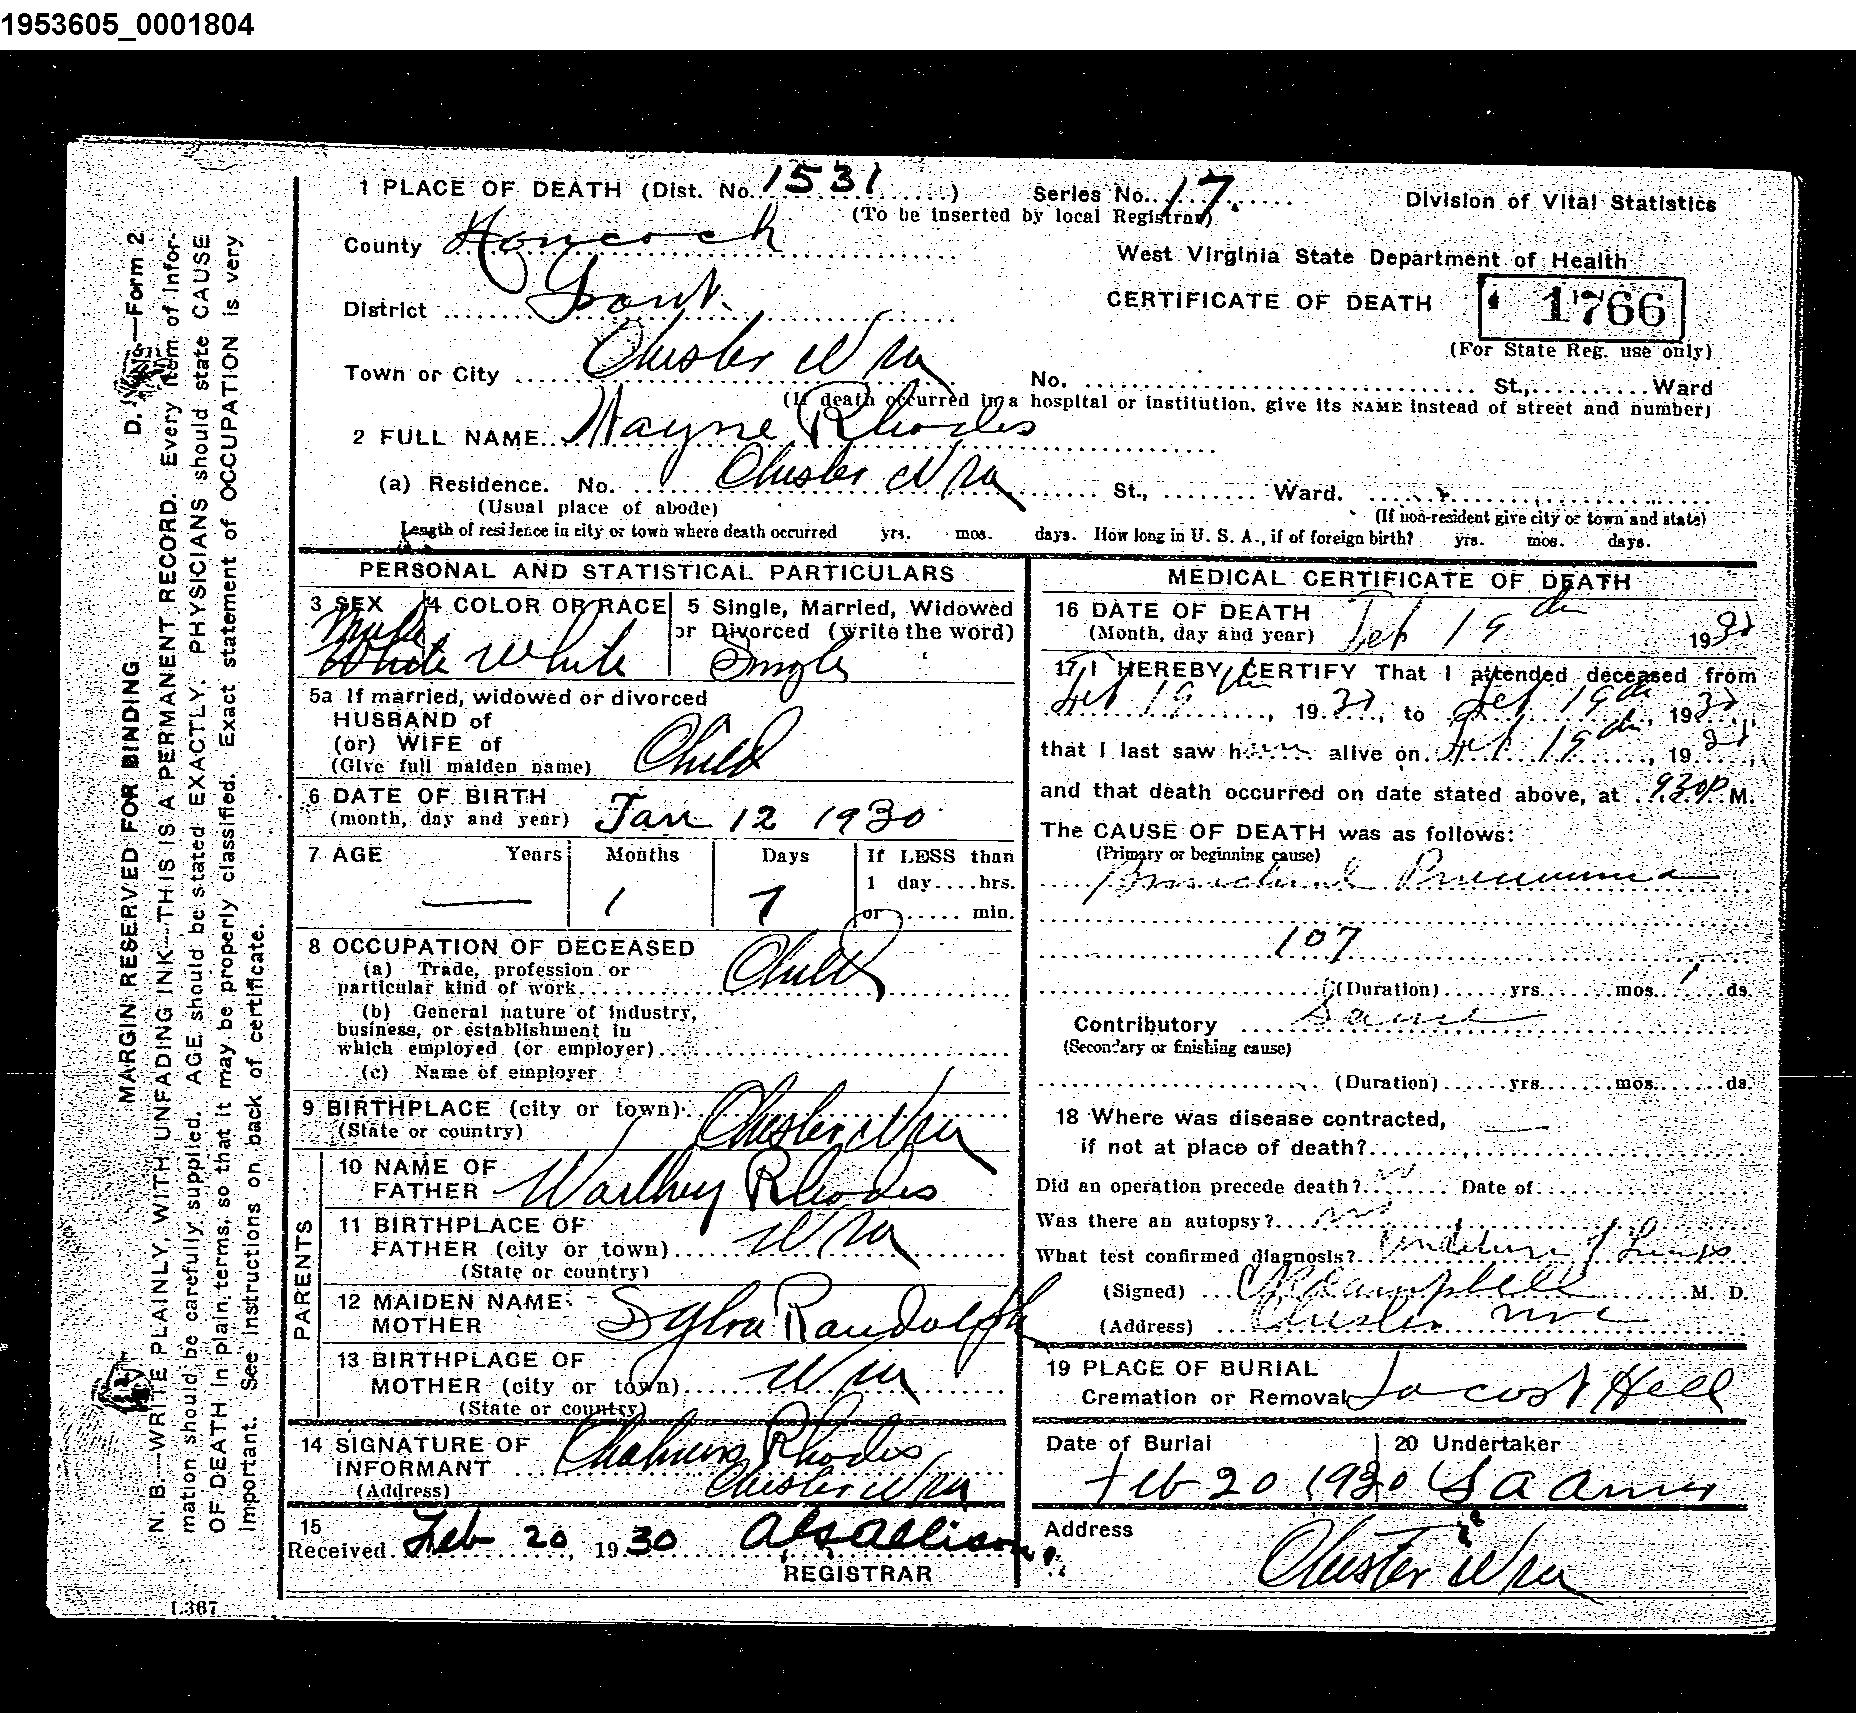 1953605_0001804
1 PLACE OF DEATH (Dist. No. 1531) Series No. 17. Division of Vital Statistics
(To be inserted by local Registrar)
County Hancock
West Virginia State Department of Health
District Grant
CERTIFICATE OF DEATH 1766
(For State Reg. use only)
Town or City Chester W Va No. St., Ward
(If death occurred in a hospital or institution, give its NAME instead of street and number)
2 FULL NAME Wayne Rhodes
(a) Residence. No. Chester W Va St., Ward.
(Usual place of abode) (If non-resident give city or town and state)
Length of residence in city or town where death occurred yrs. mos. days. How long in U. S. A., if of foreign birth? yrs. mos. days.
PERSONAL AND STATISTICAL PARTICULARS
3 SEX 4 COLOR OR RACE 5 Single, Married, Widowed
or Divorced (write the word)
Male
White White Single
5a If married, widowed or divorced
HUSBAND of
(or) WIFE of
(Give full maiden name) Child
6 DATE OF BIRTH
(month, day and year) Jan 12 1930
7 AGE Years Months Days If LESS than
1 day....hrs.
— 1 7 or ...... min.
8 OCCUPATION OF DECEASED
(a) Trade, profession or
particular kind of work Child
(b) General nature of industry,
business, or establishment in
which employed (or employer)
(c) Name of employer
9 BIRTHPLACE (city or town) Chester W Va
(State or country)
PARENTS
10 NAME OF
FATHER Rhodes
11 BIRTHPLACE OF
FATHER (city or town) W Va
(State or country)
12 MAIDEN NAME
MOTHER Sylva Randolph
13 BIRTHPLACE OF
MOTHER (city or town) W Va
(State or country)
14 SIGNATURE OF
INFORMANT Rhodes
(Address) Chester W Va
15
Received Feb 20, 1930 Allison
REGISTRAR
MEDICAL CERTIFICATE OF DEATH
16 DATE OF DEATH
(Month, day and year) Feb 19th 1930
17 I HEREBY CERTIFY That I attended deceased from
Feb 19th, 1930, to Feb 19th, 1930,
that I last saw him alive on Feb 19th, 1930,
and that death occurred on date stated above, at 930P M.
The CAUSE OF DEATH was as follows:
(Primary or beginning cause)
Bronchial Pneumonia
107
(Duration) yrs. mos. 1 ds.
Contributory Same
(Secondary or finishing cause)
(Duration) yrs. mos. ds.
18 Where was disease contracted,
if not at place of death?
Did an operation precede death? no Date of
Was there an autopsy? no
What test confirmed diagnosis? of Lungs
(Signed) Campbell M. D.
(Address) Chester
19 PLACE OF BURIAL
Cremation or Removal Locost Hill
Date of Burial 20 Undertaker
Feb 20 1930
Address
Chester W Va
MARGIN RESERVED FOR BINDING
D. —Form 2
N. B.—WRITE PLAINLY, WITH UNFADING INK—THIS IS A PERMANENT RECORD. Every item of infor-
mation should be carefully supplied. AGE should be stated EXACTLY. PHYSICIANS should state CAUSE
OF DEATH in plain terms, so that it may be properly classified. Exact statement of OCCUPATION is very
important. See instructions on back of certificate.
L367